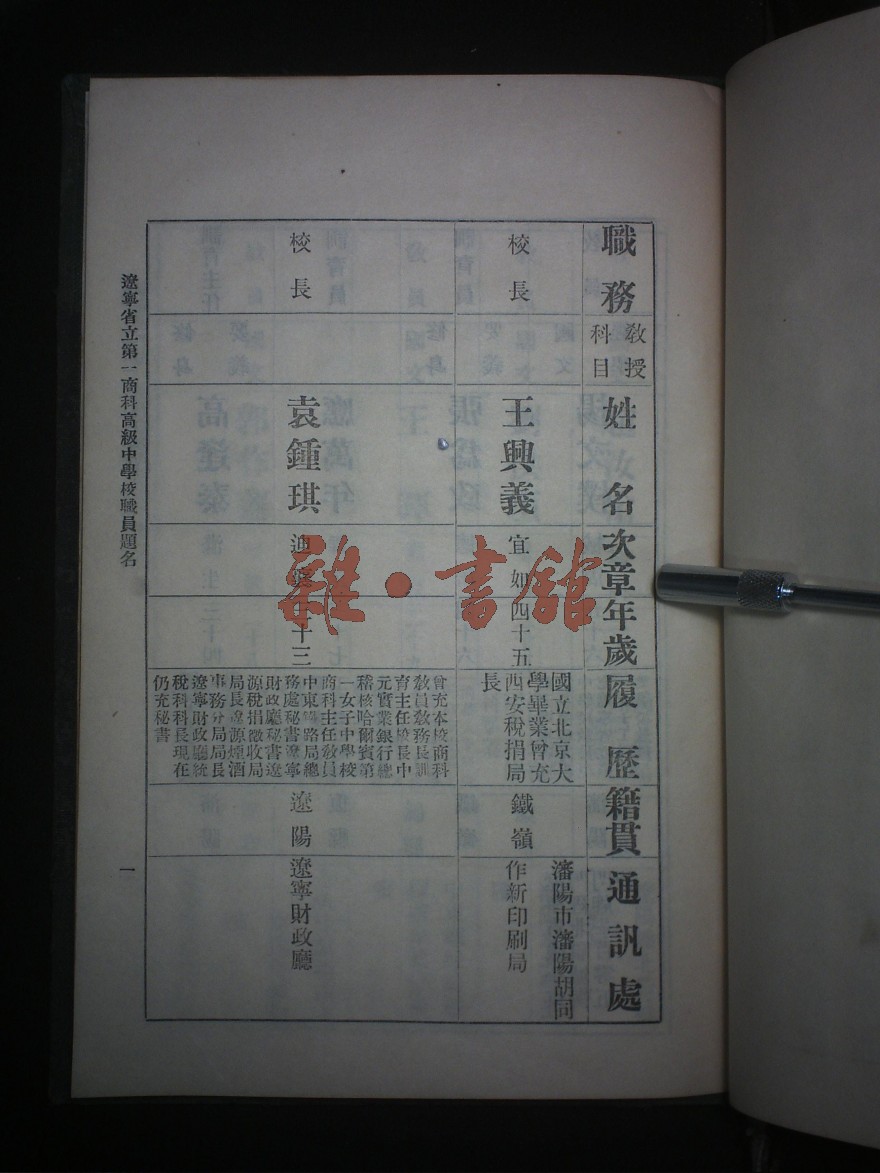 職務
教授
科目
姓名
次章
年歲
履歷
籍貫
通訊處
校長
王興義
宜如
四十五
國立北京大
學畢業曾充
西安稅捐局
長
鐵嶺
瀋陽市瀋陽胡同
作新印刷局
校長
袁鍾琪
十三
曾充本校商科
教員教務長訓
育主任校長中
元實業銀行總
稽核哈爾賓第
一女子中學校
商科主任教員
中東鐵路局總
務處秘書遼寧
財政廳秘書遼
源稅捐徵收局
局長遼源煙酒
事務分局局長
遼寧財政廳統
稅科科長現在
仍充秘書
遼陽
遼寧財政廳
遼寧省立第一商科高級中學校職員題名
一
雜·書館